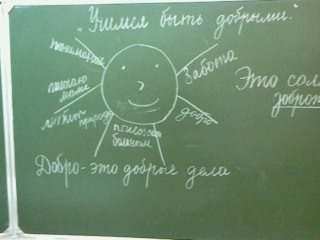 „Учимся быть добрыми."
понимание
Забота
помогаю
маме
любит
природу
помогаю
больным
добро
Это сол
доброт
Добро - это добрые дела